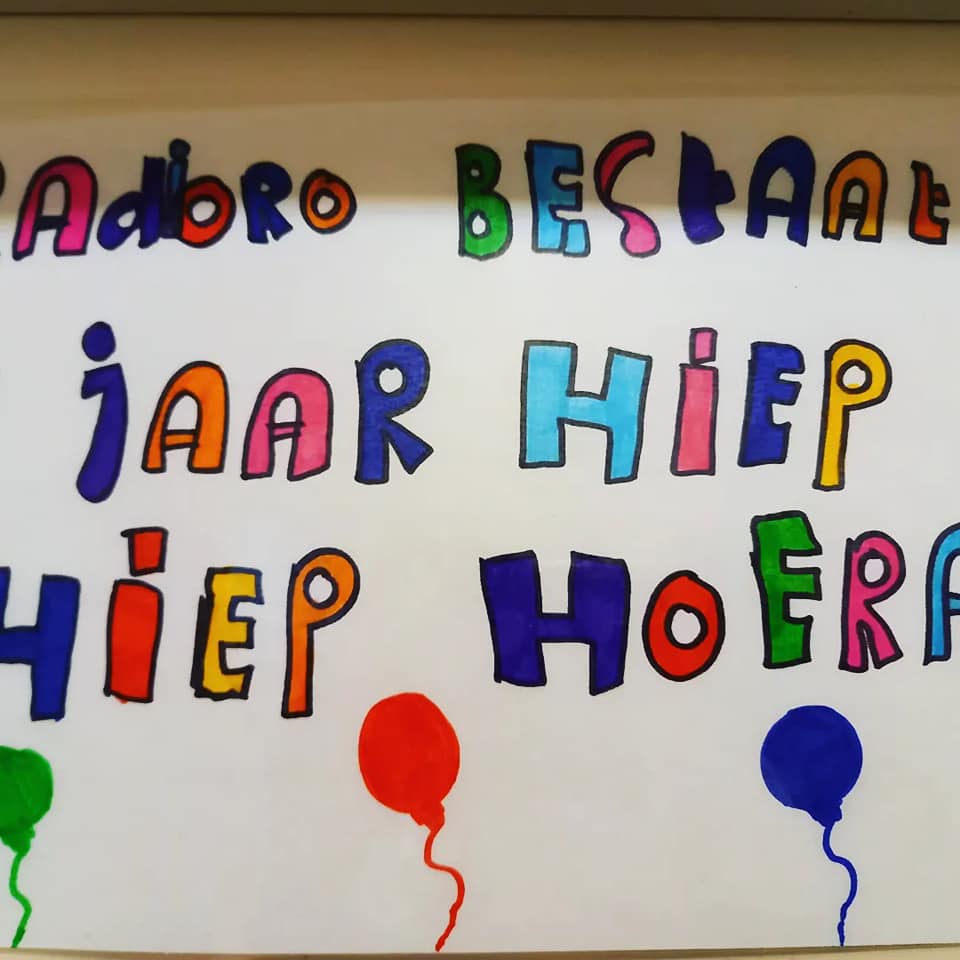 AdioRo BEStAAt
jAAR HiEP
HiEP HOERA